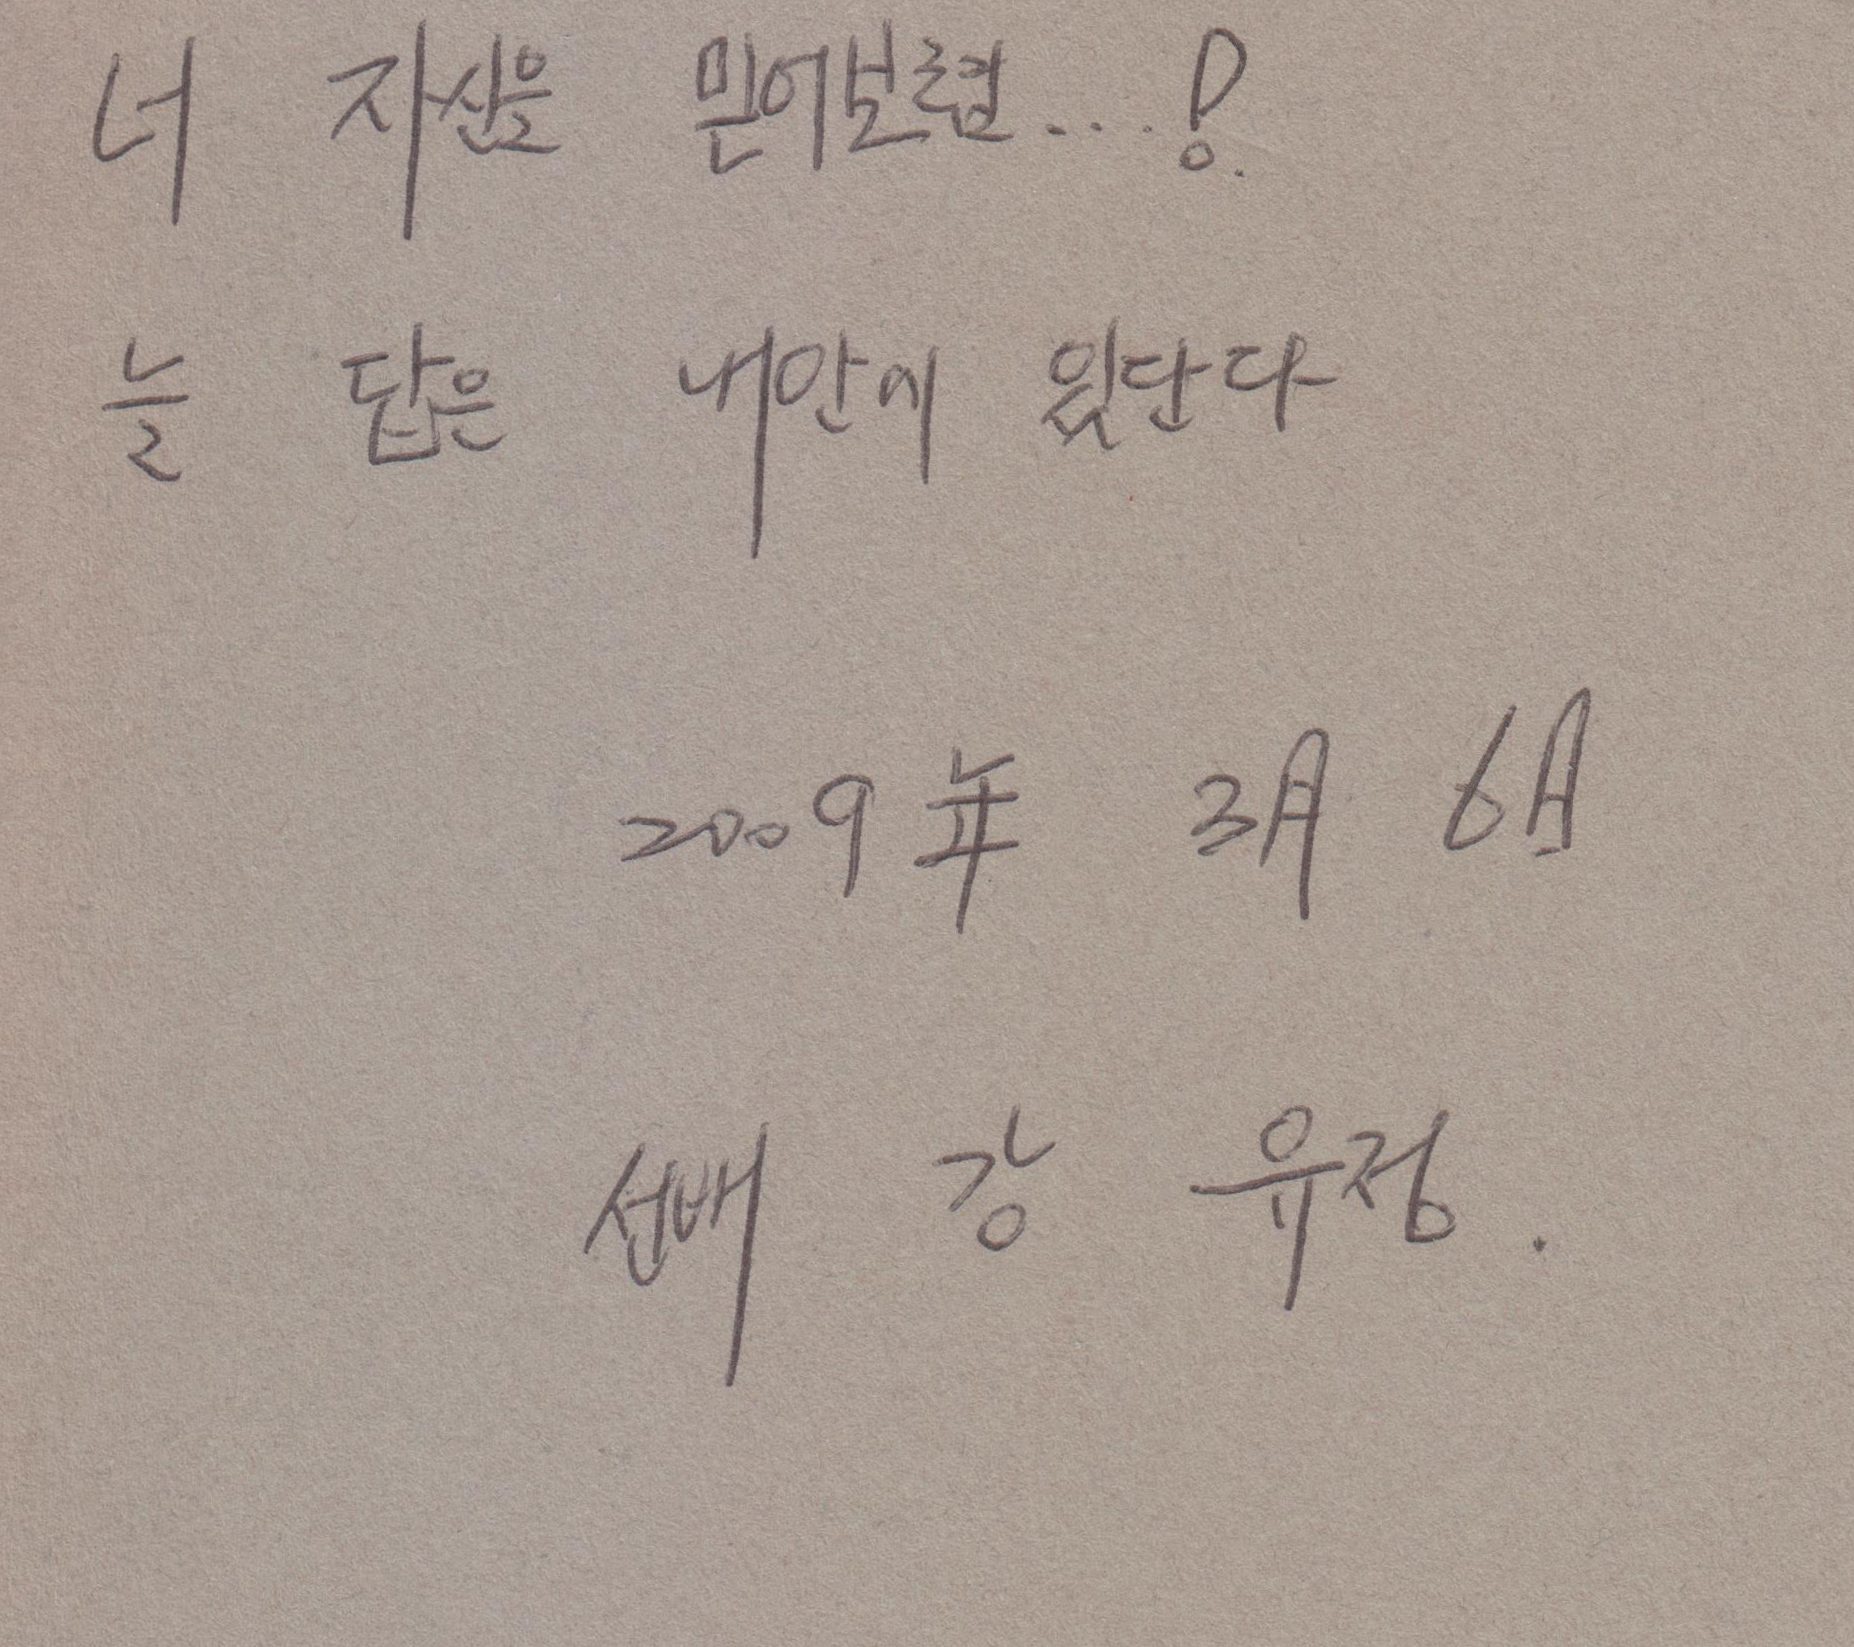 너 자신을 믿어보렴...!
늘 답은 내안에 있단다
2009年 3月 6日
선배 강 유정.